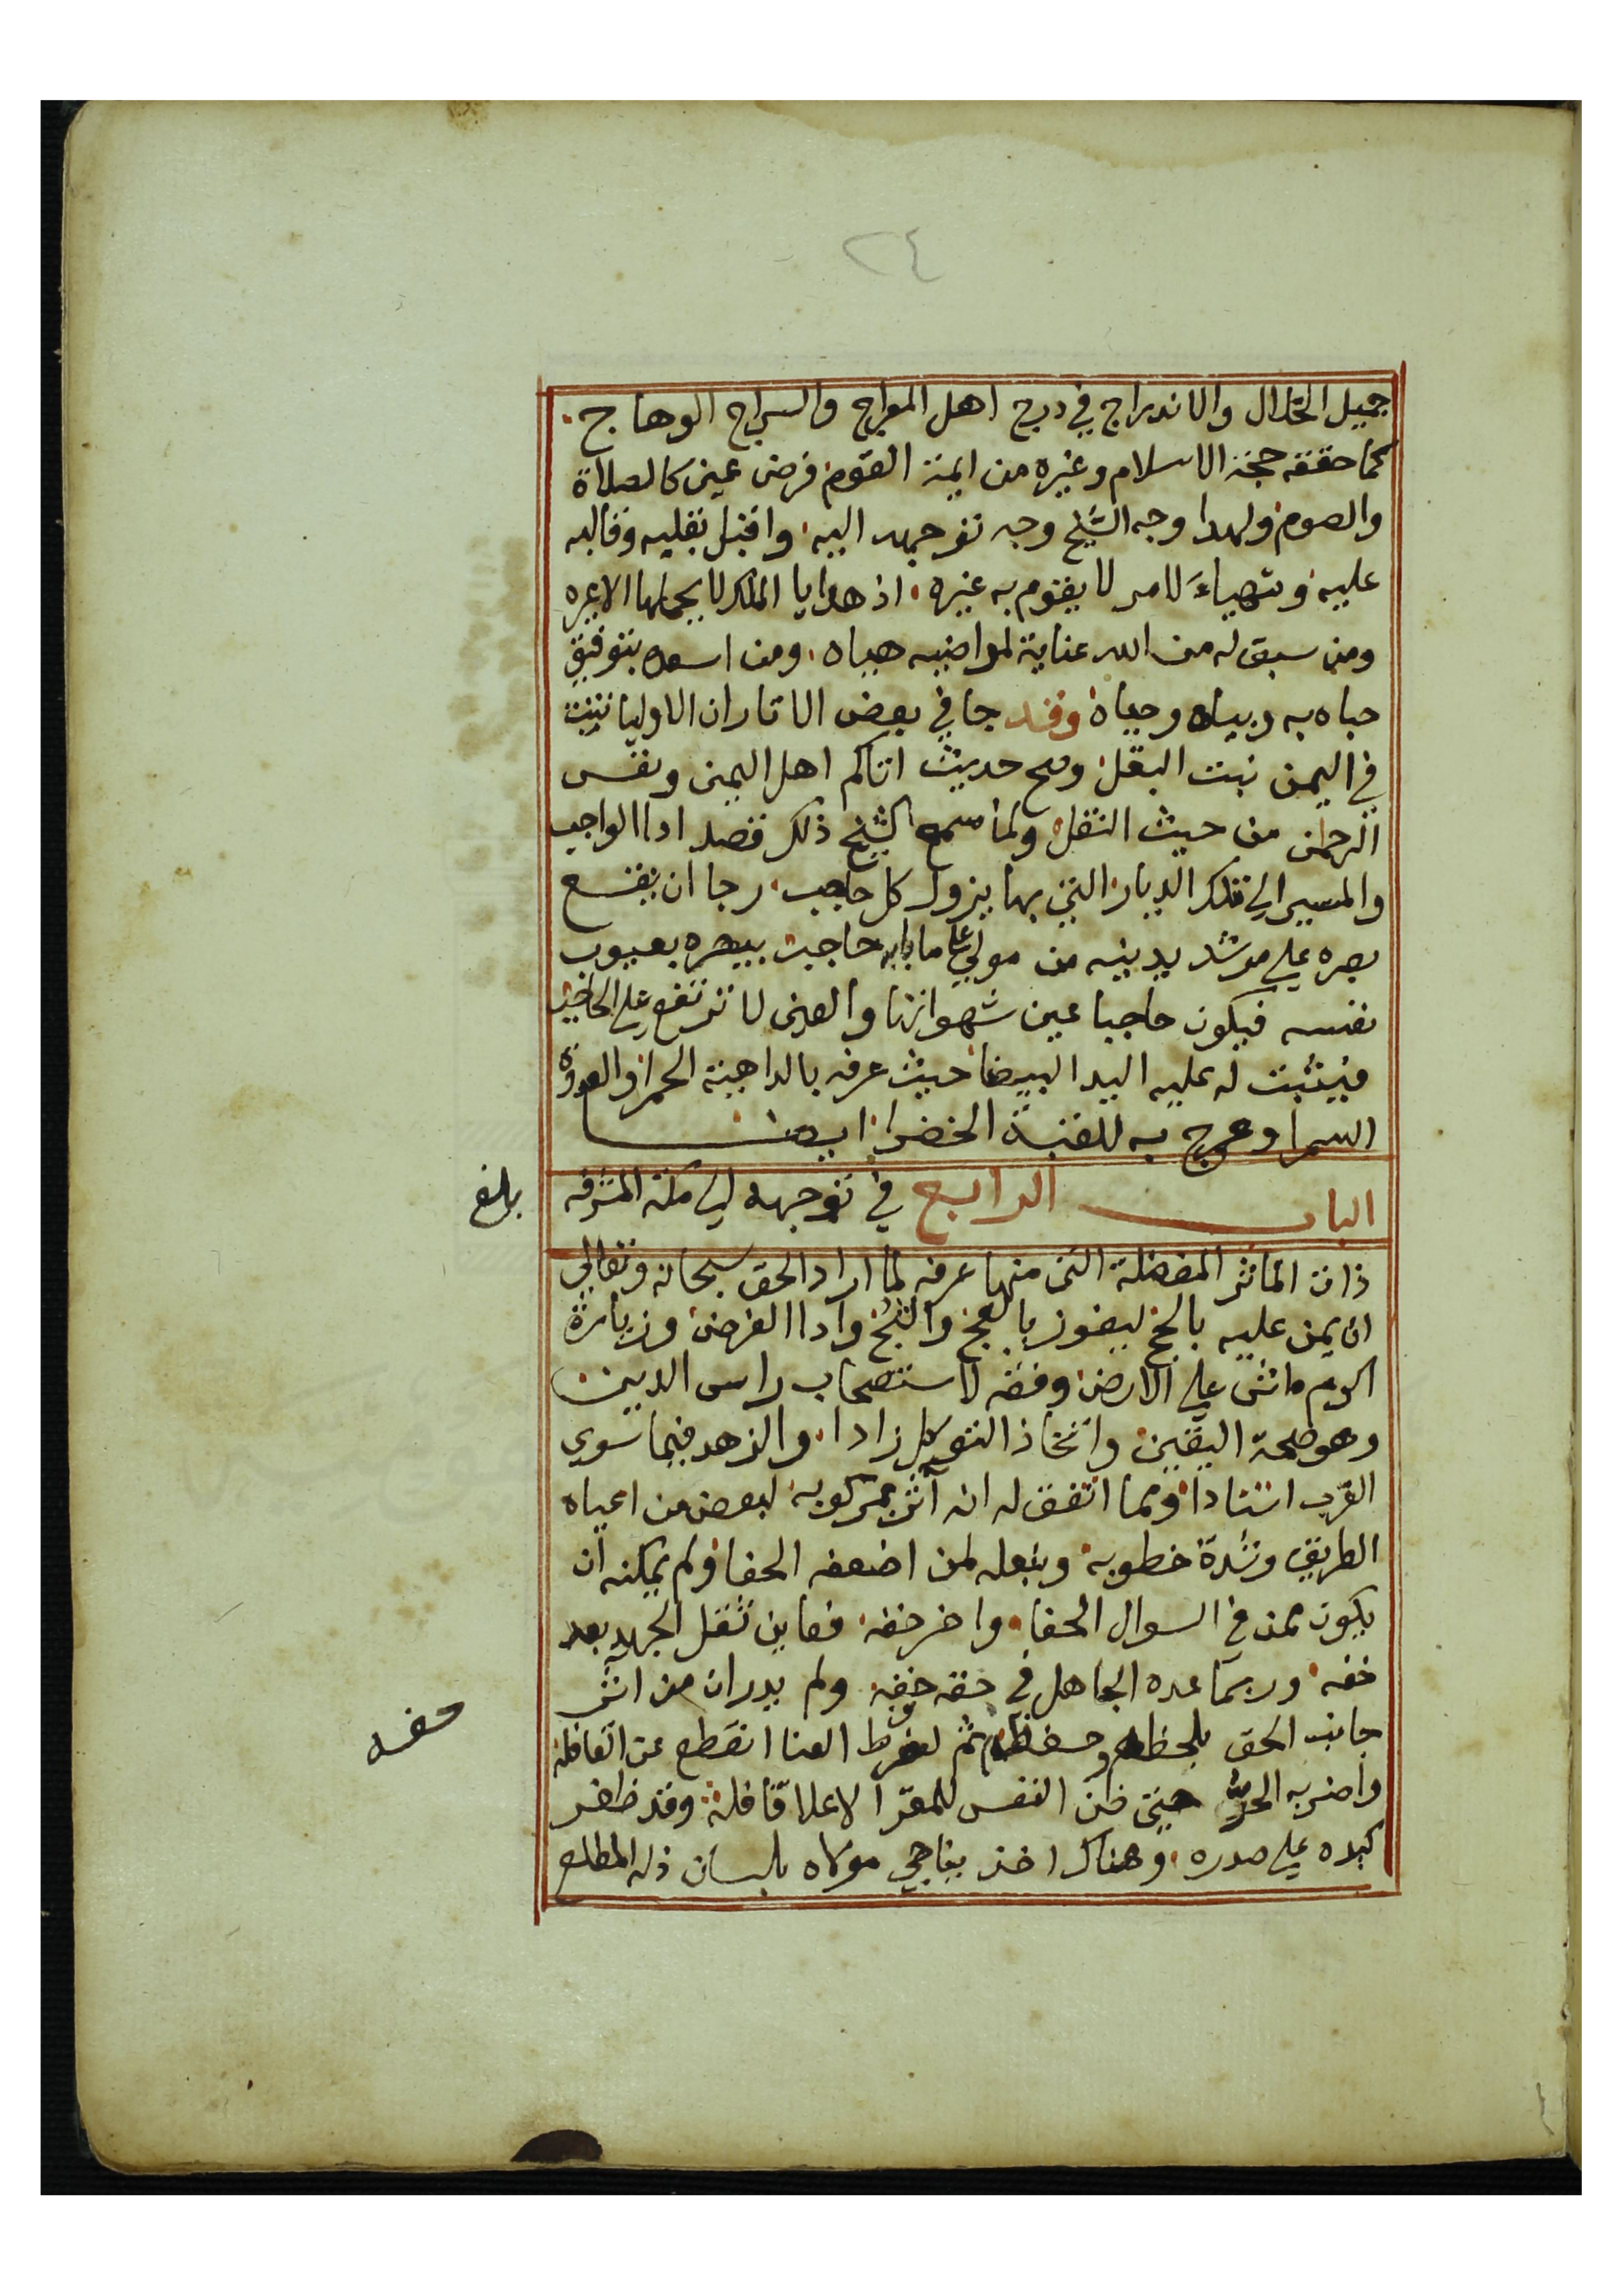 ٢٤
جميل الخلال والاندراج في درج اهل المعراج والسراج الوهاج
كما حققه حجة الاسلام وغيره من ايمة القوم فرض عين كالصلاة
والصوم ولهذا وجه الشيخ وجه توجهه اليه واقبل بقلبه وقالبه
عليه وتهياء لامر لا يقوم به غيره اذ هدايا الملك لا يحملها الا عيره
ومن سبق له من الله عناية لمراضيه هياه ومن اسعده بتوفيق
حباه به وبياه وحياه وقد جا في بعض الاثار ان الاوليا تنبت
في اليمن نبت البقل وصح حديث اتاكم اهل اليمن ونفس
الرحمن من حيث النقل ولما سمع الشيخ ذلك قصد ادا الواجب
والمسير الي تلك الديار التي بها يزول كل حاجب رجا ان يقع
بصره علي مرشد يدينه من مولي علي ما بابه حاجب يبصره بعيوب
نفسه فيكون حاجبا عين شهواتها والعين لا ترتفع علي الحاجب
فيثبت له عليه اليد البيضا حيث عرفه بالداهية الحمرا والعدوة
السمرا وعرج به للقبة الخضرا ايضا
الباب الرابع في توجهه الي مكة المشرفه
بلغ
ذات الماثر المفضلة التي منها عرفه لما اراد الحق سبحانه وتعالي
ان يمن عليه بالحج ليفوز بالعج والثج وادا الفرض وزيارة
اكرم ماشي علي الارض وفقه لاستصحاب راس الدين
وهو صحة اليقين واتخاذ التوكل زادا والزهد فيما سوي
القرب استنادا ومما اتفق له انه آثر بمركوبه لبعض من اعياه
الطريق وشدة خطوبه وبنعله لمن اضعفه الحفا ولم يمكنه ان
يكون ممن في السوال الحفا واخر خفه فعاين ثقل الجهد بعد
خفه وربما عده الجاهل في حقه خفه ولم يدر ان من اثر
حفه
جانب الحق بلحظه وحفظه ثم لفرط العنا انقطع عن القافلة
واضر به الحر حتي ظن النفس للمقر الاعلا قافلة وقد ظفر
كبده علي صدره وهناك اخذ يناجي مولاه بلسان ذله المطلع